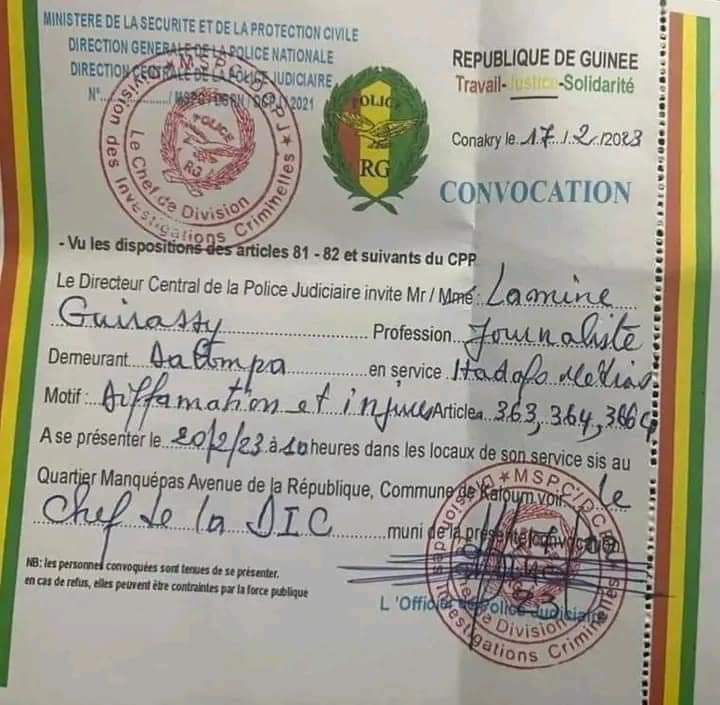 MINISTERE DE LA SECURITE ET DE LA PROTECTION CIVILE
DIRECTION GENERALE DE LA POLICE NATIONALE
DIRECTION CENTRALE DE LA POLICE JUDICIAIRE
N°................/MSPC/DGPN/DCPJ/2021
MSPC/DCPJ
Division des Investigations Criminelles
Le Chef de Division
POLICE
RG
POLICE
RG
REPUBLIQUE DE GUINEE
Travail-Justice-Solidarité
Conakry le 17/2/2023
CONVOCATION
- Vu les dispositions des articles 81 - 82 et suivants du CPP
Le Directeur Central de la Police Judiciaire invite Mr / Mme: Lamine
Guirassy Profession Journaliste
Demeurant en service Hadafo Médias
Motif : Diffamation et injures Articles 363, 364,
A se présenter le 20/2/23 à 10 heures dans les locaux de son service sis au
Quartier Manquépas Avenue de la République, Commune de Kaloum voir le
Chef de la DIC muni de la présente convocation
NB: les personnes convoquées sont tenues de se présenter.
en cas de refus, elles peuvent être contraintes par la force publique
L 'Officier de Police Judiciaire
MSPC/DCPJ
Chef de Division
Investigations Criminelles